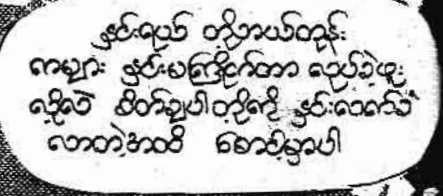 နှင်းရယ် တို့ဘယ်တုန်း
ကများ နှင်းမကြိုက်တာ လုပ်ခဲ့ဖူး
လို့လဲ စိတ်ချပါတို့ကို နှင်းလက်ခံ
လာတဲ့အထိ စောင့်မှာပါ